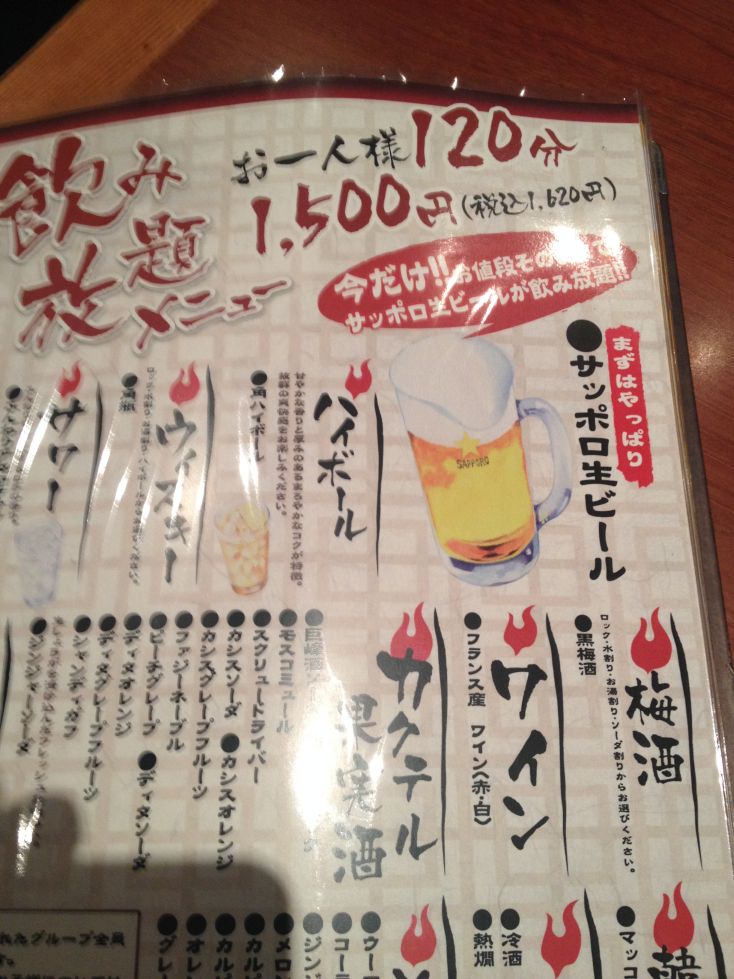 飲み
放題
メニュー
お一人様120分
1,500円(税込1,620円)
今だけ!!お値段その
サッポロ生ビールが飲み放題!!
まずはやっぱり
●サッポロ生ビール
SAPPORO
ハイボール
甘やかな香りと厚みのあるまろやかなコクが特徴。
抜群の爽快感をお楽しみください。
●角ハイボール
ウィスキー
●角瓶
サワー
梅酒
ロック・水割り・お湯割り・ソーダ割りからお選びください。
●黒梅酒
ワイン
●フランス産 ワイン(赤・白)
カクテル
果実酒
●巨峰酒
●モスコミュール
●スクリュードライバー
●カシスソーダ ●カシスオレンジ
●カシスグレープフルーツ
●ファジーネーブル
●ピーチグレープ ●ディタソーダ
●ディタオレンジ
●ディタグレープフルーツ
●シャンディガフ
●マッ
●冷酒
●熱燗
●ウー
●コーラ
●ジン
●メロ
●カル
●カルピ
●オレ
●グレ
れたグループ全員